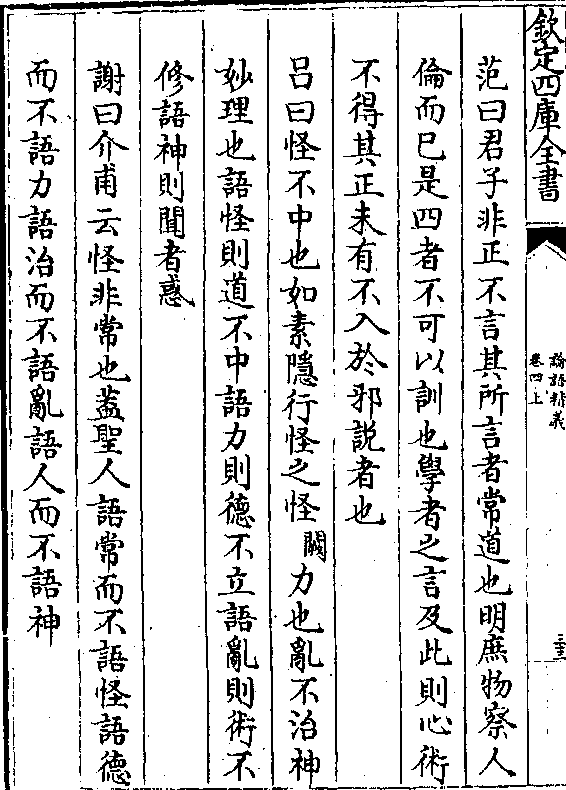 欽定四庫全書
論語精義
卷四上
范曰君子非正不言其所言者常道也明庶物察人
倫而已是四者不可以訓也學者之言及此則心術
不得其正未有不入於邪説者也
吕曰怪不中也如素隱行怪之怪闕力也亂不治神
妙理也語怪則道不中語力則德不立語亂則術不
修語神則聞者惑
謝曰介甫云怪非常也葢聖人語常而不語怪語德
而不語力語治而不語亂語人而不語神